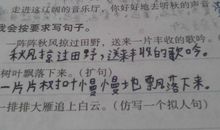 走进这辽阔的音乐厅，你好好地去听秋的声音
我会按要求写句子。
一阵阵秋风掠过田野，送来一片丰收的歌吟。
秋风掠过田野，送来丰收的歌吟。
树叶飘落下来。（扩句）
一片片树叶慢慢地飘落下来。
一排排大雁追上白云。（仿写一个拟人句）